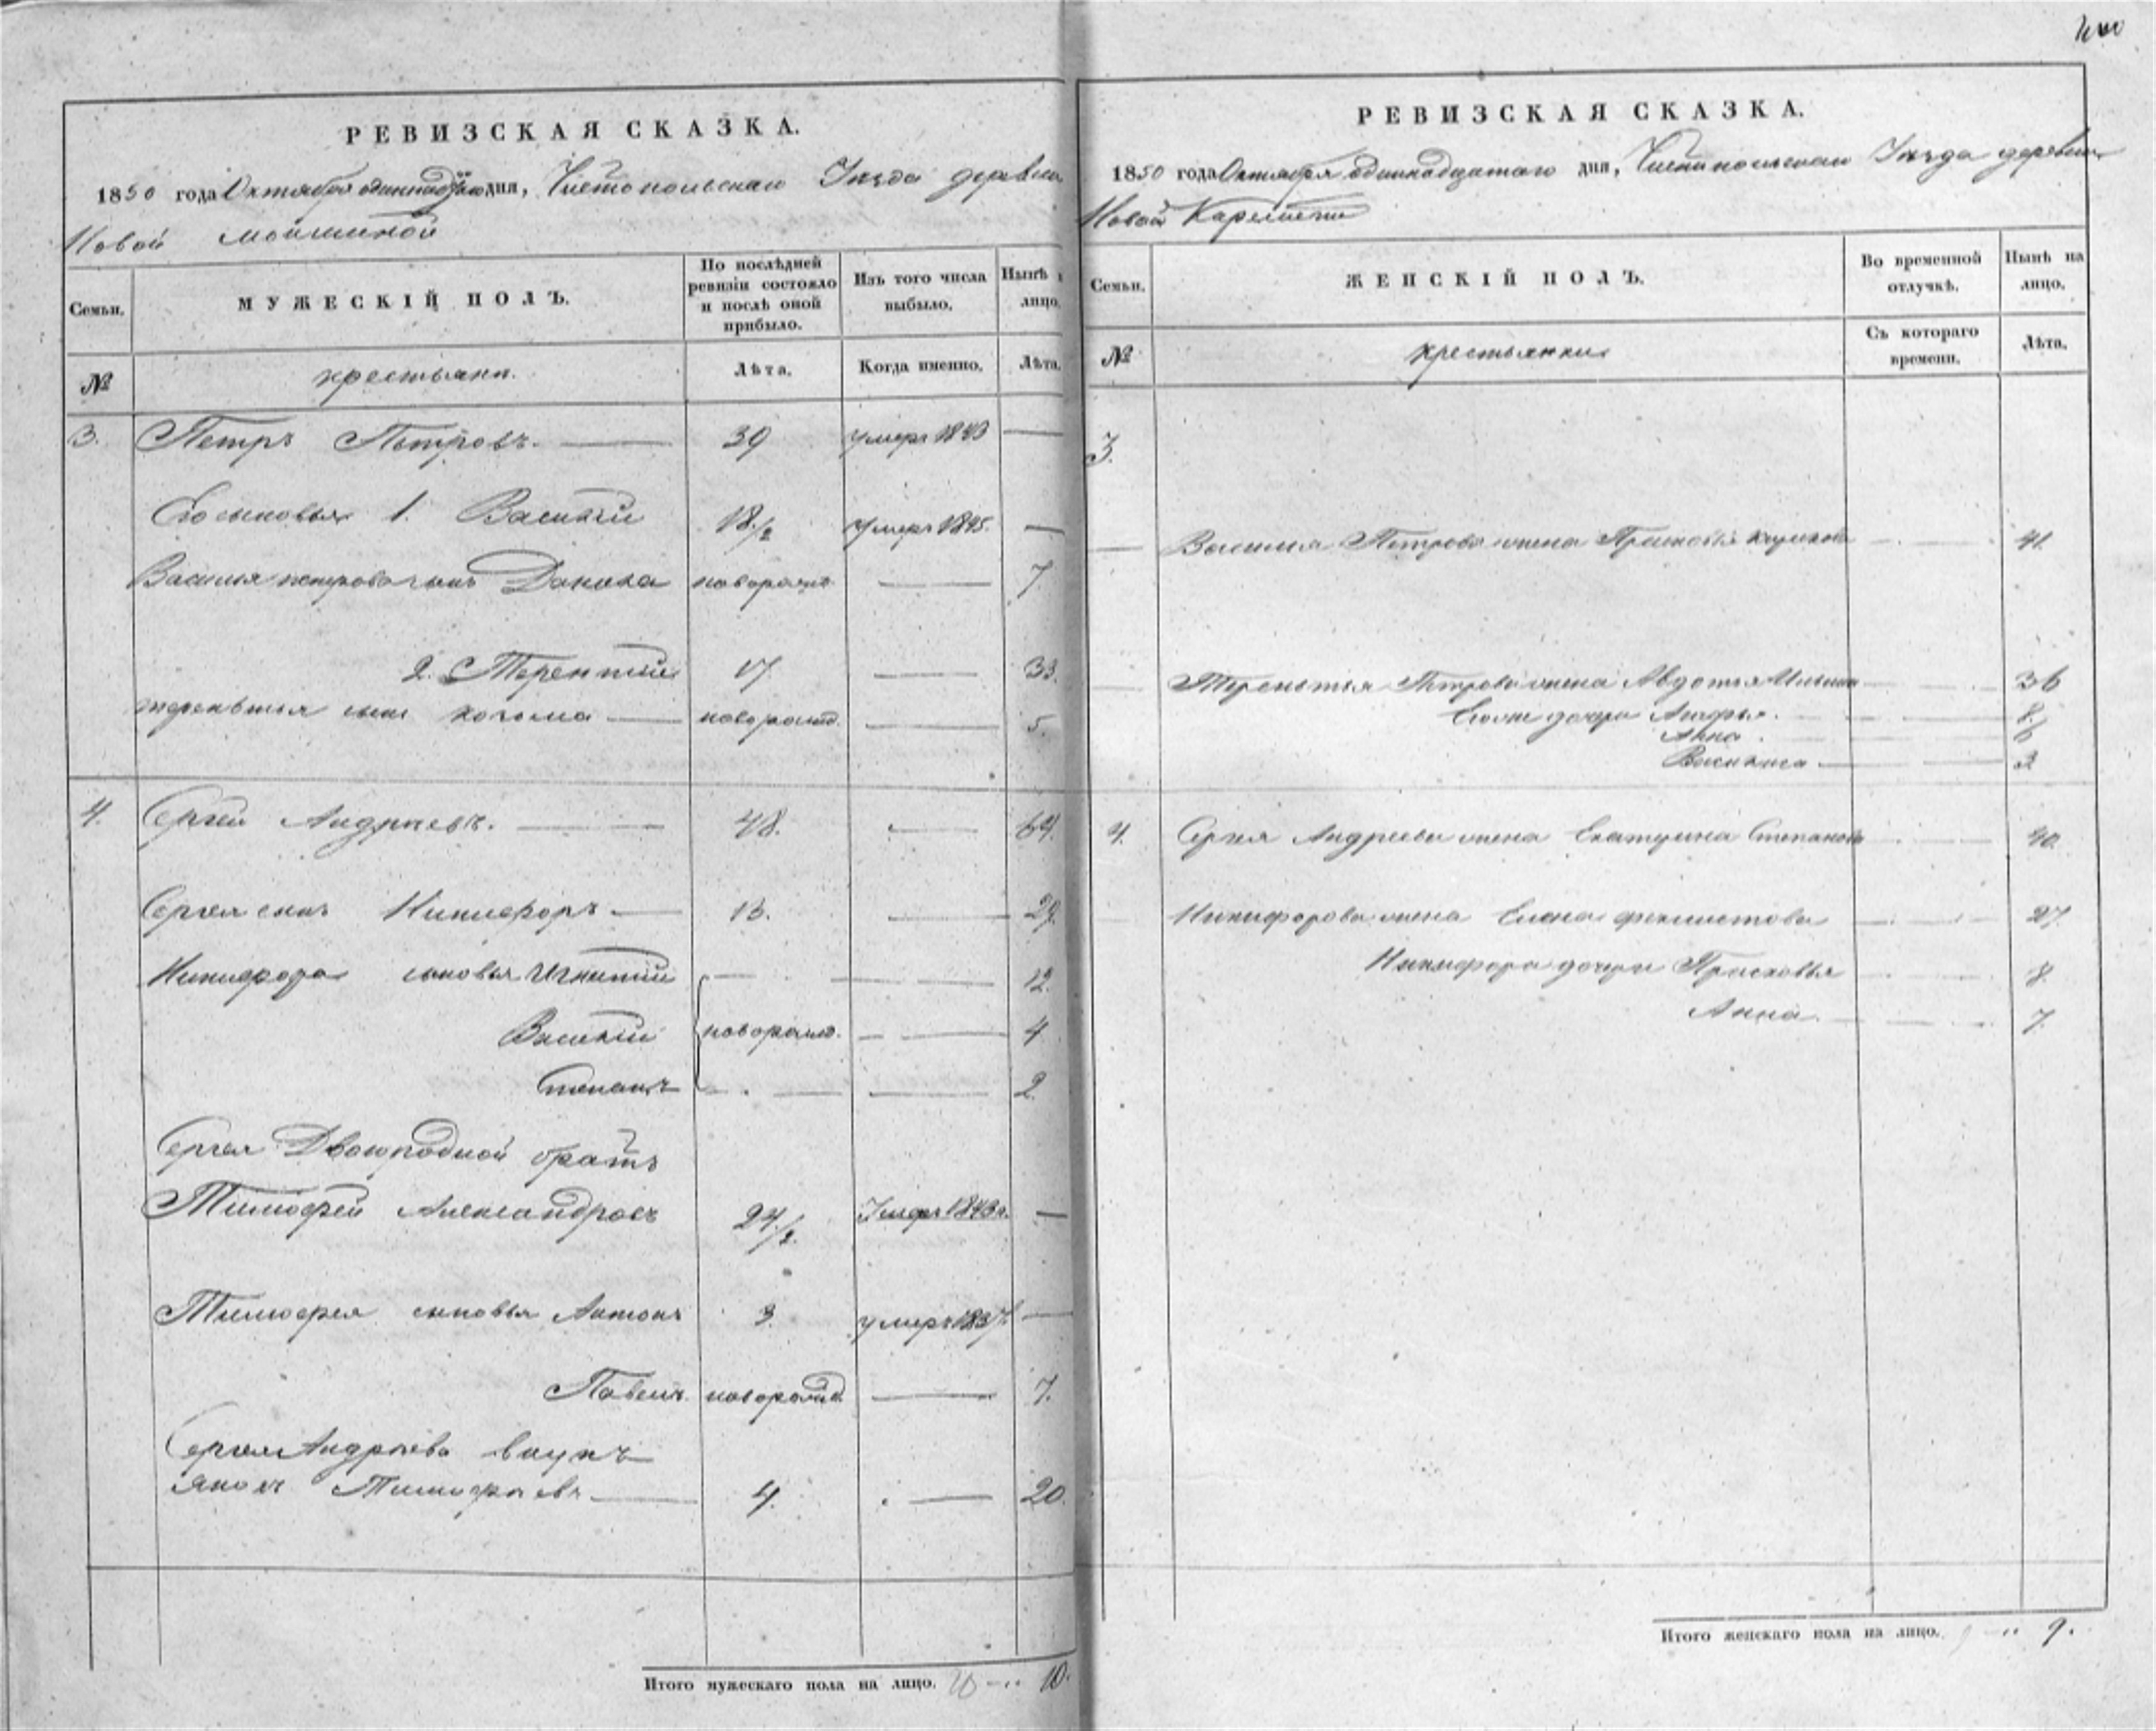 РЕВИЗСКАЯ СКАЗКА.
1850 года Октября одиннадцатаго дня, Чистопольскаго Уѣзда деревни
Новой
Семьи.
МУЖЕСКІЙ ПОЛЪ.
По послѣдней ревизіи состояло и послѣ оной прибыло.
Изъ того числа выбыло.
Нынѣ
лицо.
№
крестьяне.
Лѣта.
Когда именно.
Лѣта.
3. Петръ Петровъ. 39 умеръ 1843 —
Его сыновья 1. Василій 18 1/2 умеръ 1845. —
Василья петрова сынъ Данила новорожд — 7.
2. Терентій 17 — 33.
терентья сынъ новорожд. — 5.
4. Сергей Андреевъ. 48. — 64.
Сергея сынъ Никифоръ 13. — 29.
Никифора сыновья Игнатій — 12.
Василій новорожд. — 4
Степанъ — 2
Сергея Двоюродной братъ
Тимофей Александровъ 24 1/2. Умеръ 1843 г. —
Тимофея сыновья Антонъ 3. умеръ 1837 —
Павелъ новорожд. — 7.
Сергея Андреева внукъ
Яковъ Тимофеевъ 4. — 20.
Итого мужескаго пола на лицо. 10.
РЕВИЗСКАЯ СКАЗКА.
1850 года Октября одиннадцатаго дня, Чистопольскаго Уѣзда деревни
Новой
Семьи.
ЖЕНСКІЙ ПОЛЪ.
Во временной отлучкѣ.
Нынѣ на лицо.
№
крестьянки
Съ котораго времени.
Лѣта.
3.
Василья Петрова жена Прасковья — 41.
Терентья Петрова жена Авдотья Ильина — 36
Его же дочери — 8.
Анна. — 6
Василиса — 3
4. Сергея Андреева жена Екатерина Степанова — 40
Никифорова жена Елена феклистова — 27.
Никифора дочери Прасковья — 8.
Анна. — 7.
Итого женскаго пола на лицо. 9.